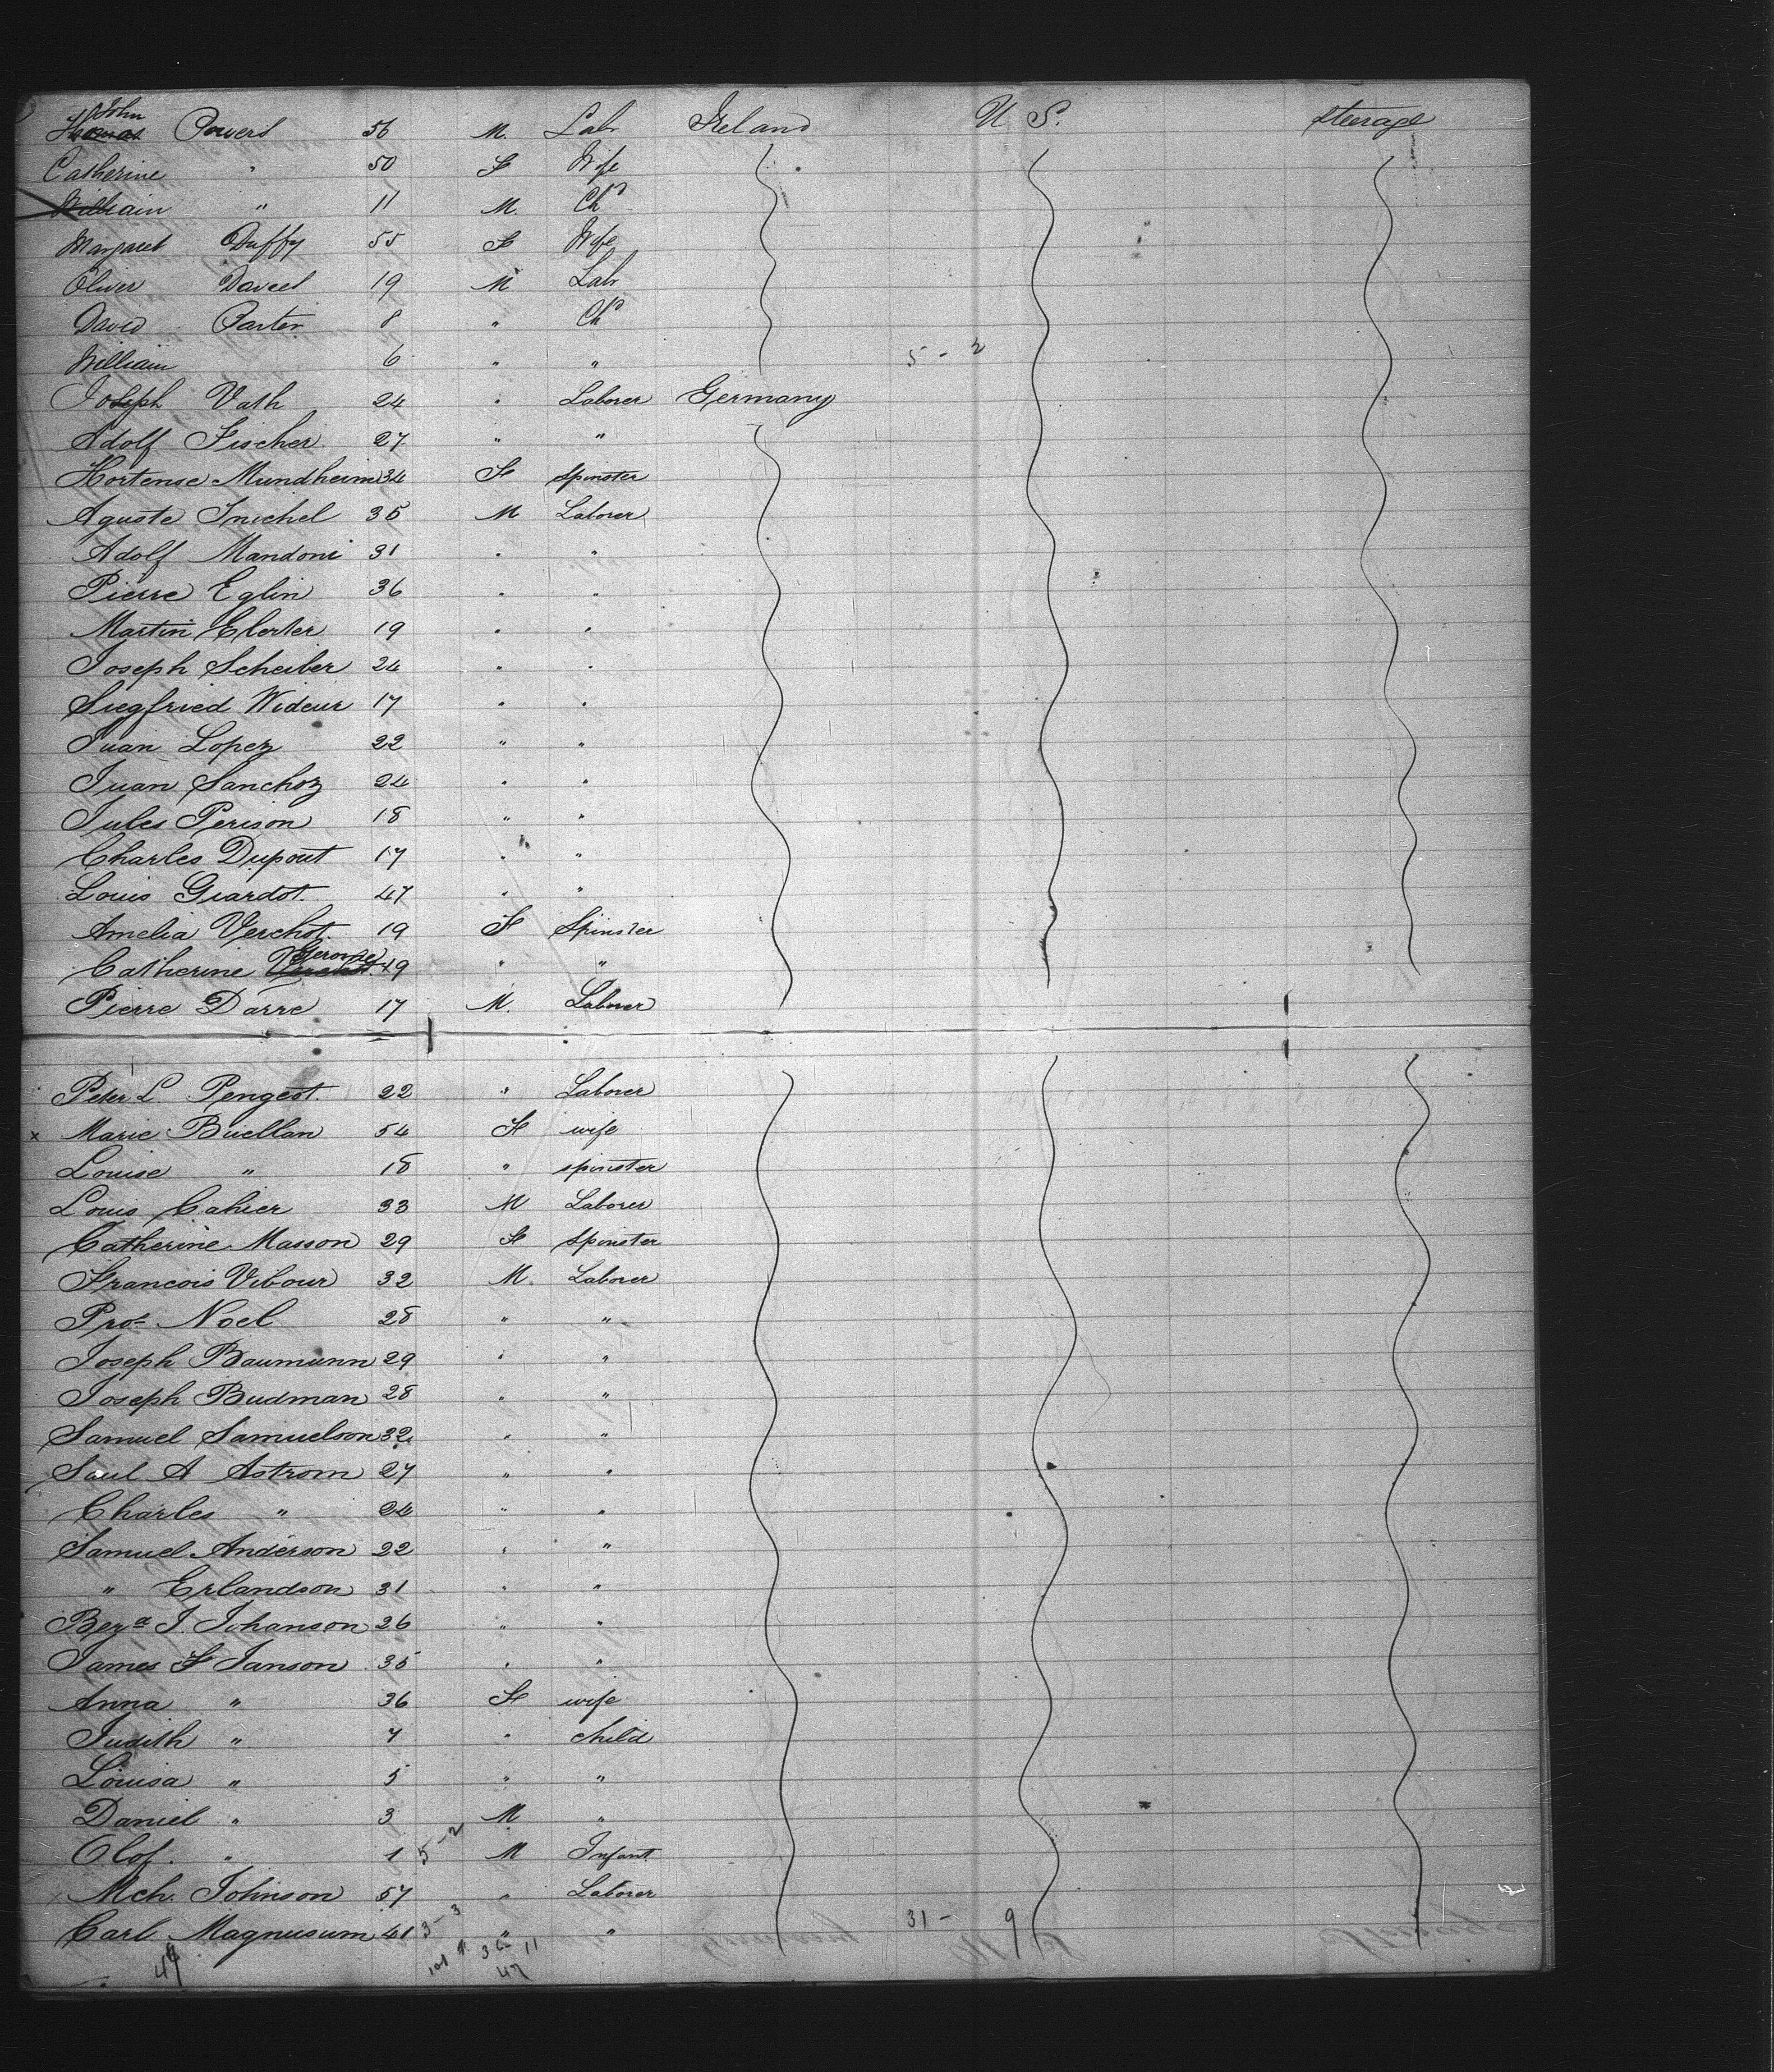 John
Thomas Powers 56 M. Labr Ireland U S. steerage
Catherine " 50 F Wife
William " 11 M. Chd
Margaret Duffy 55 F Wife
Oliver 19 M Labr
David Carter 8 " Chd
William 6 " " 5 - 2
Joseph Vath 24 " Laborer Germany
Adolf Fischer 27 " "
Hortense Mundheim 34 F Spinster
Aguste 35 M Laborer
Adolf Mandoni 31 " "
Pierre Eglin 36 " "
Martin 19 " "
Joseph Scheiber 24 " "
Siegfried Wideur 17 " "
Juan Lopez 22 " "
Juan Sanchoz 24 " "
Jules Perison 18 " "
Charles Dupout 17 " "
Louis Giardot. 47 " "
Amelia Verchot. 19 F Spinster
Gerome
Catherine Verchot 49 " "
Pierre Darre 17 M. Laborer
Peter L Pengeot. 22 " Laborer
x Marie Buellan 54 F wife
Louise " 18 " spinster
Louis Cahier 33 M Laborer
Catherine Masson 29 F Spinster
Francois Vibour 32 M. Laborer
Pros Noel 28 " "
Joseph Baumunn 29 " "
Joseph Budman 28 " "
Samuel Samuelson 32 " "
Saul A Astrom 27 " "
Charles " 24 " "
Samuel Anderson 22 " "
" Erlandson 31 " "
Beza J. Johanson 26 " "
James F Janson 35 " "
Anna " 36 F wife
Judith " 7 " child
Louisa " 5 " "
Daniel " 3 M "
Olof. " 1 5-2 M Infant
Mch. Johnson 57 " Laborer
Carl Magnusum 41 3-3 " " 31- 9
47 36 11
47